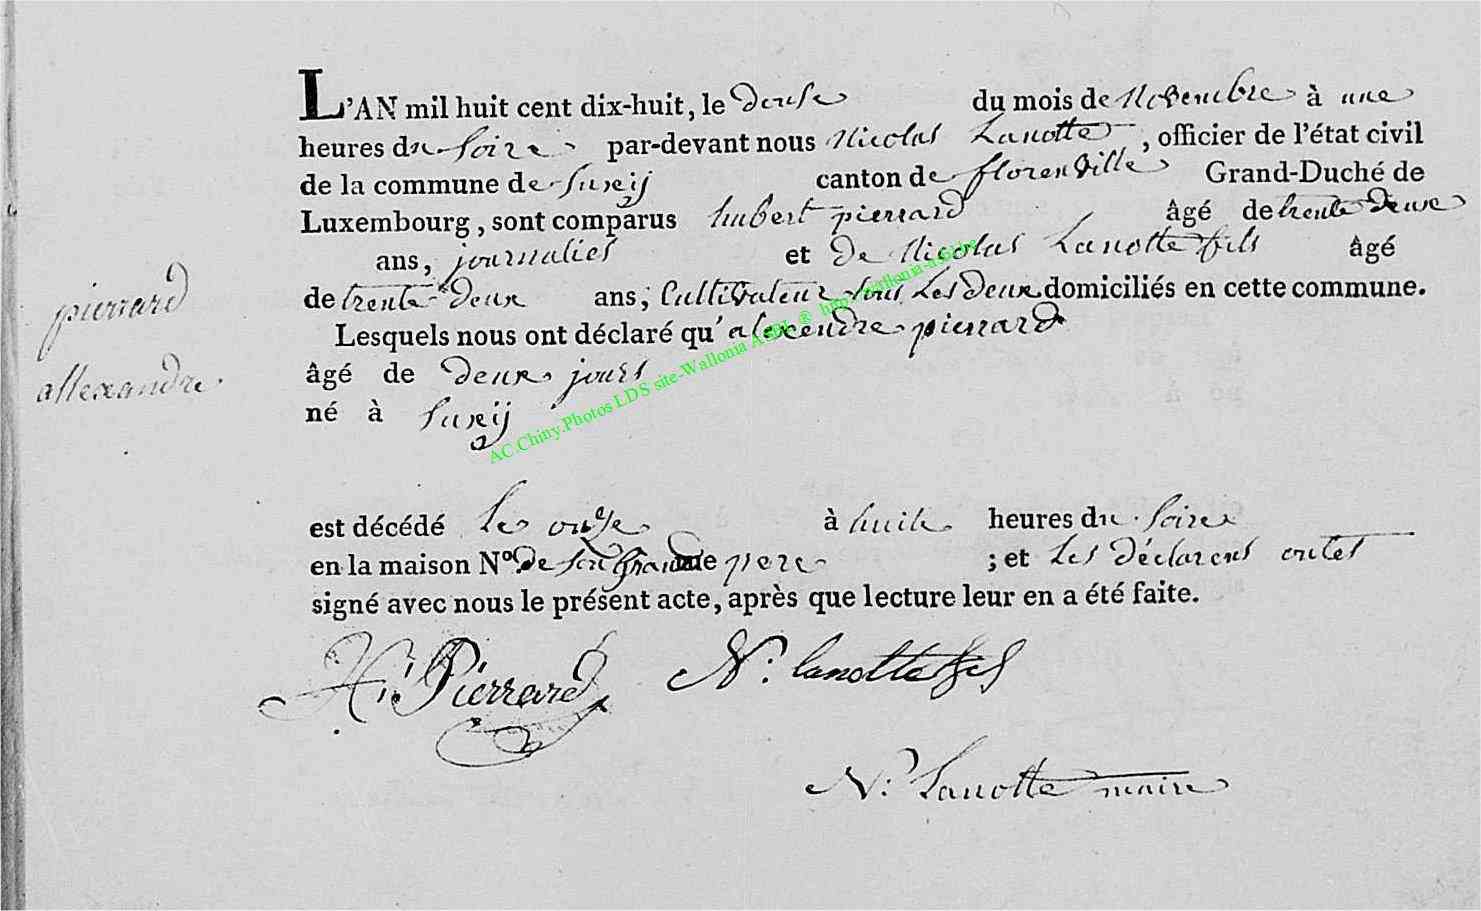 L'AN mil huit cent dix-huit, le douse du mois de Novembre à une
heures du soire par-devant nous Nicolas Lanotte, officier de l'état civil
de la commune de Suxeij canton de florenville Grand-Duché de
Luxembourg, sont comparus hubert pierrard âgé de trente deux
ans, journalies et de Nicolas Lanotte fils âgé
de trente deux ans, Cultivateur tous Les deux domiciliés en cette commune.
Lesquels nous ont déclaré qu'alexendre pierrard
âgé de deux jours
né à Suxeij
pierrard
allexandre
AC.Chiny.Photos LDS site-Wallonia ASBL ®
est décédé le onze à huite heures du soire
en la maison No. de son Grande pere ; et Les déclarens ontes
signé avec nous le présent acte, après que lecture leur en a été faite.
H: Pierrard N: lanotte fils
N: Lanotte maire